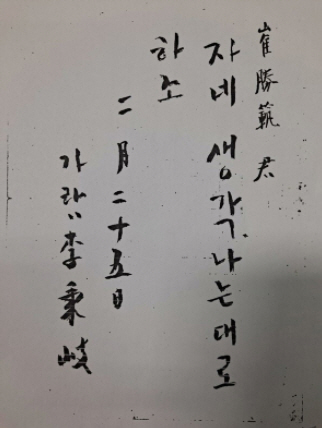 崔勝範君
자네 생각, 나는대로
하소
二月二十五日
가람 李秉岐